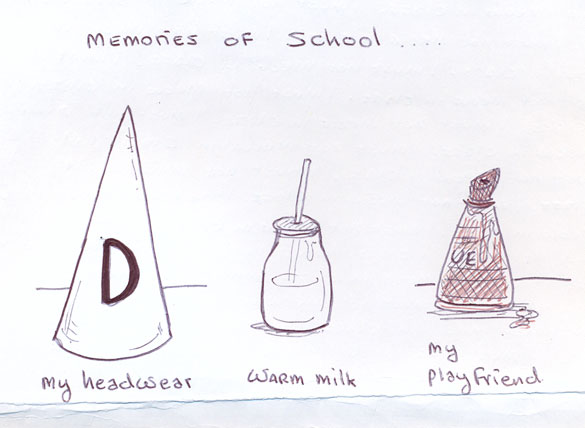 Memories of School ....
D
UE
My headwear
Warm milk
my
playfriend